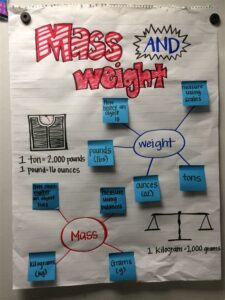 Mass AND
weight
How
heavy an
object
is
measure
using
scales
pounds
(lbs)
weight
1 ton = 2,000 pounds
1 pound = 16 ounces
ounces
(oz)
tons
matter
an object
has
measure
using
balances
Mass
1 kilogram = 1,000 grams
kilograms
(kg)
Grams
(g)